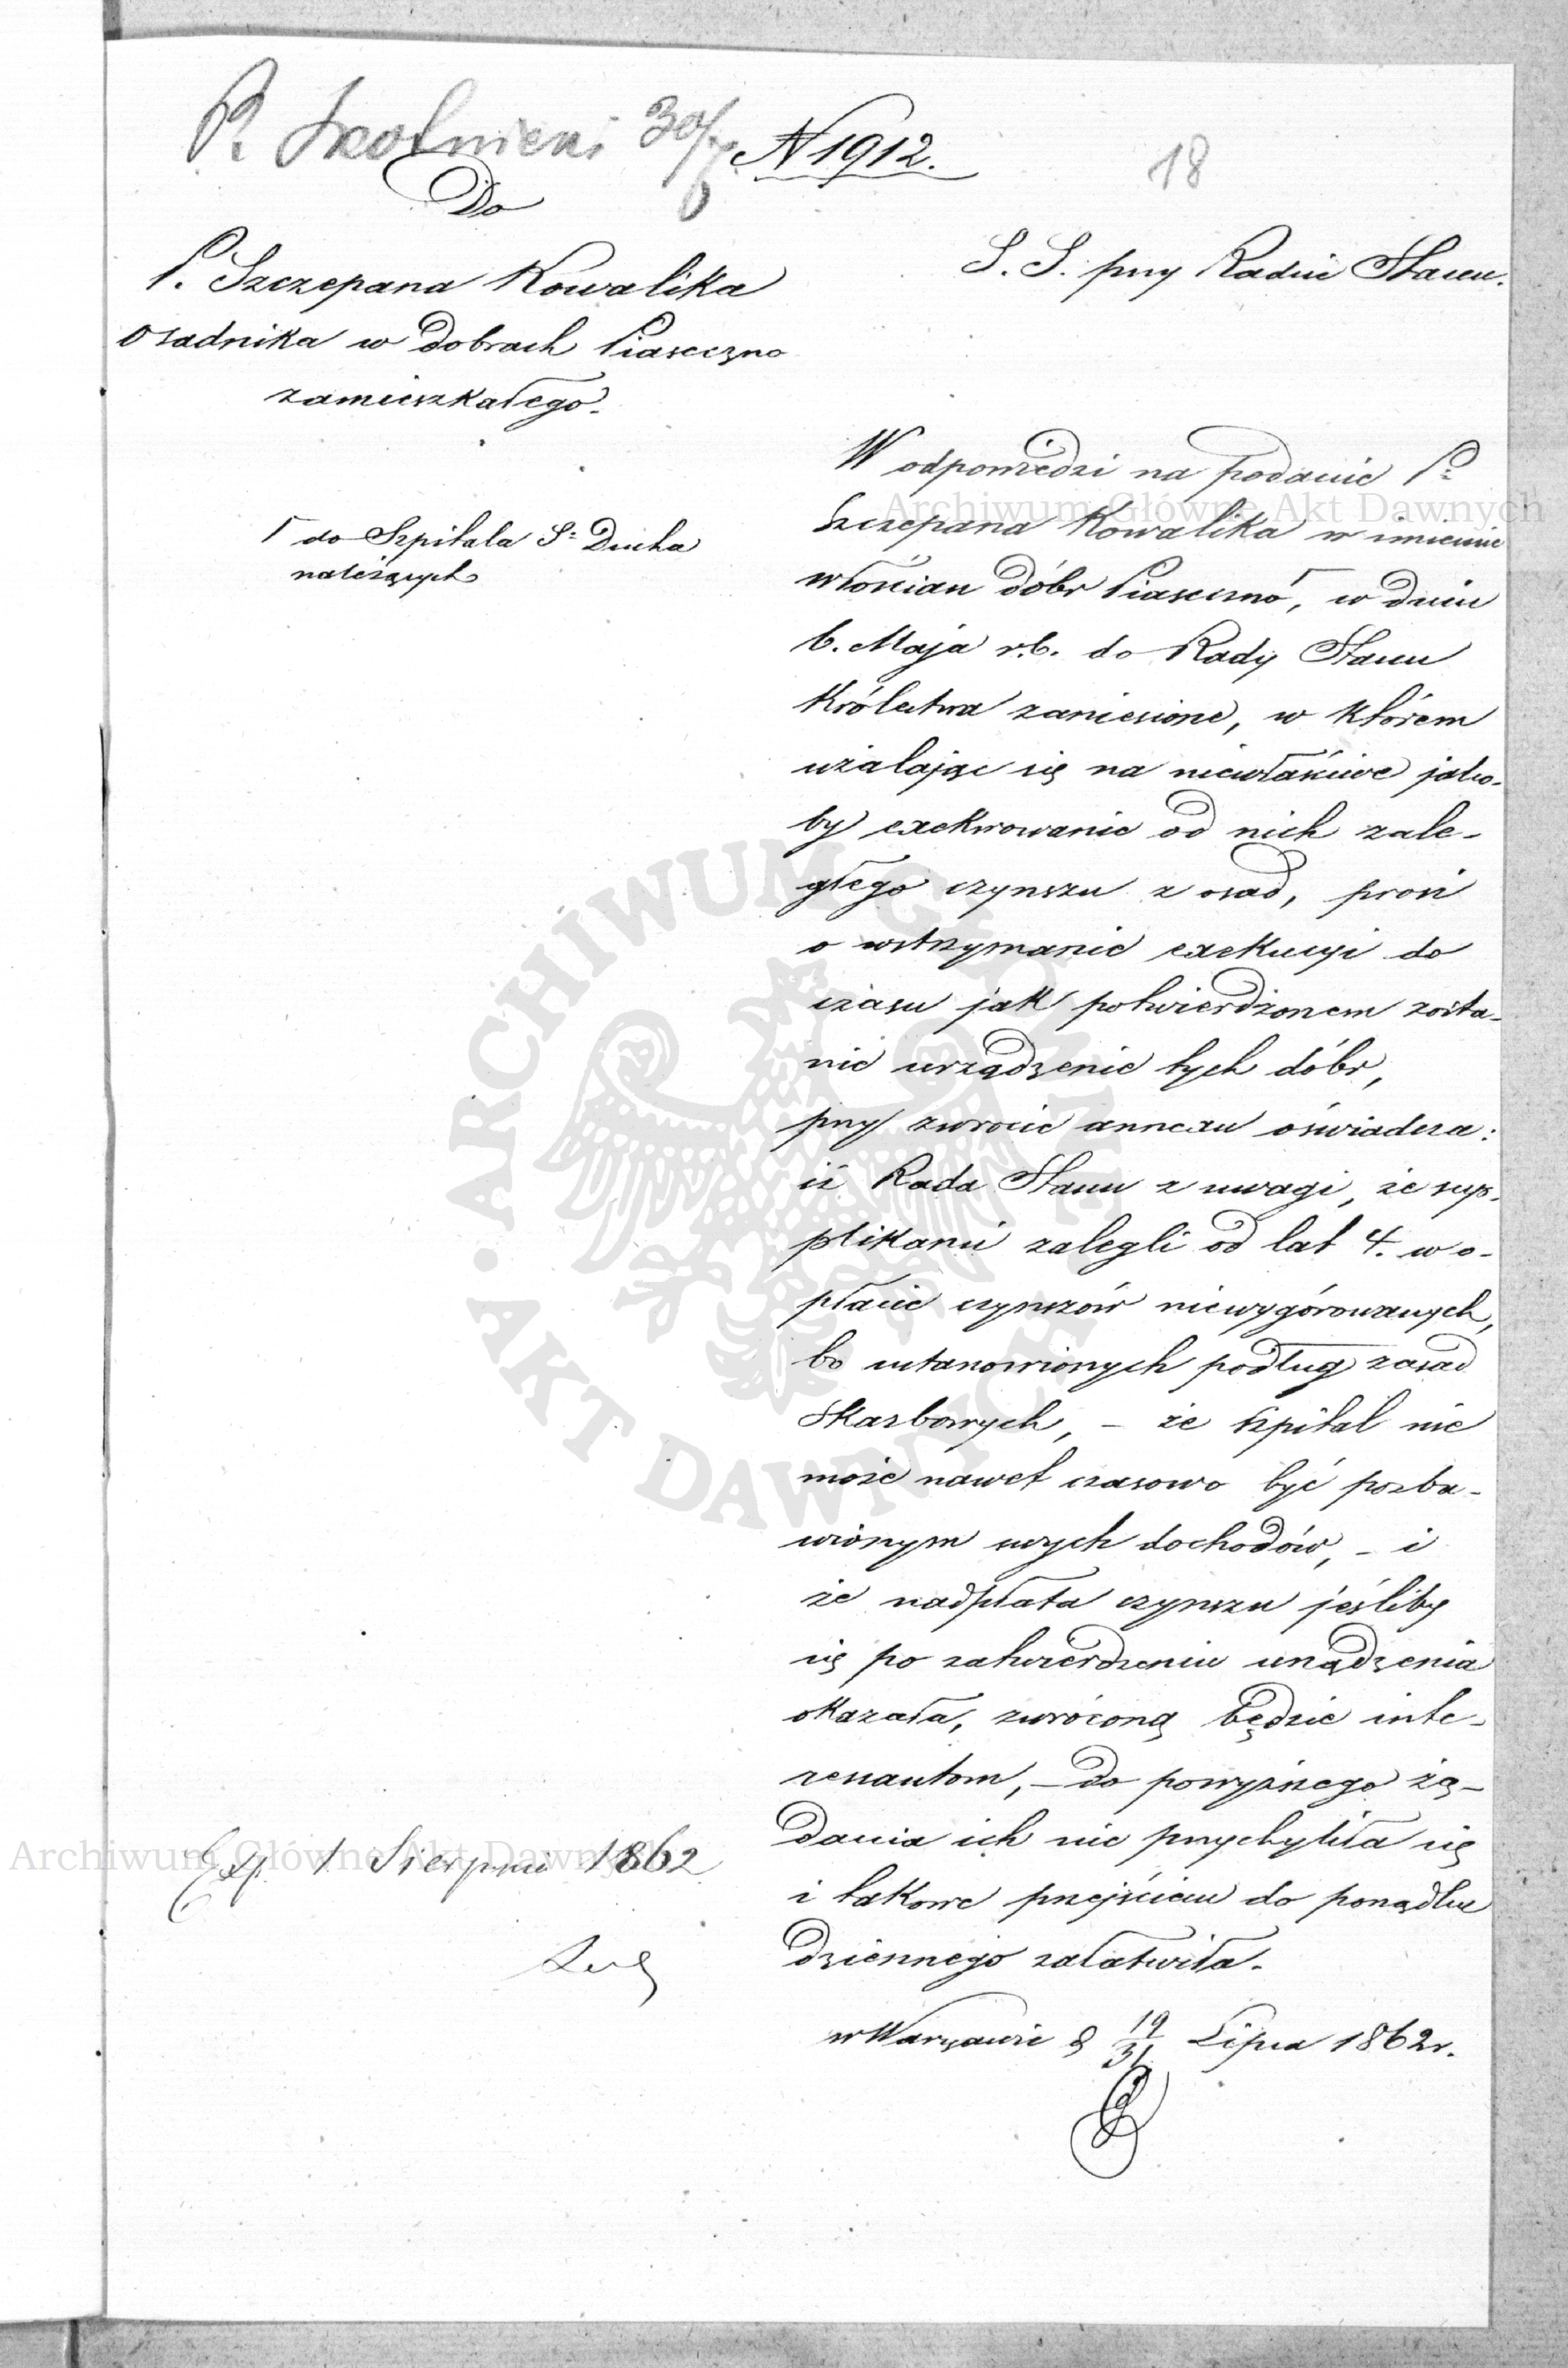 P. Skolnicki 30/7 N 1912.
18
Do
P. Szczepana Kowalika
Osadnika w Dobrach Piaseczno
zamieszkałego.
S. S. przy Radzie Stanu.
Γ do Szpitala Sº Ducha
należących
W odpowiedzi na podanie Pª
Szczepana Kowalika w imieniu
włościan dóbr Piaseczno Γ, w dniu
6. Maja r.b. do Rady Stanu
Królestwa zaniesione, w którem
użalając się na niewłaściwe jako-
by exekwowanie od nich zale-
głego czynszu z osad, prosi
o wstrzymanie exekucyi do
czasu jak potwierdzonem zosta-
nie urządzenie tych dóbr,
przy zwrocie annexu oświadcza:
iż Rada Stanu z uwagi, że sup-
plikanci zalegli od lat 4. w o-
płacie czynszów niewygórowanych,
bo ustanowionych podług zasad
Skarbowych, – że Szpital nie
może nawet czasowo być pozba-
wionym swych dochodów, – i
że nadpłata czynszu jeśliby
się po zatwierdzeniu urządzenia
okazała, zwróconą będzie inte-
ressantom, – do powyższego żą-
dania ich nie przychyliła się
i takowe przejściem do porządku
dziennego załatwiła.
w Warszawie d 19/31 Lipca 1862 r.
Exp. 1 Sierpnia 1862
Archiwum Główne Akt Dawnych
Archiwum Główne Akt Dawnych
ARCHIWUM GŁÓWNE • AKT DAWNYCH •